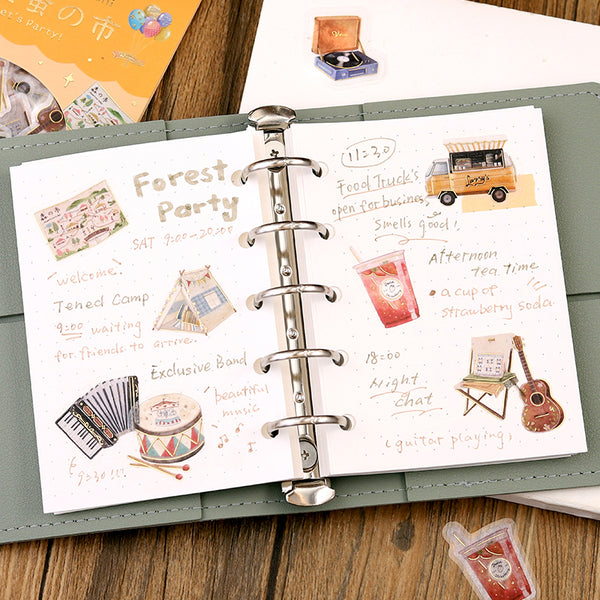 の市
et's Party!
Forest
Party
SAT 9:00-20:00
welcome!
Tened Camp
9:00 waiting
for friends to arrive.
Exclusive Band
beautiful
music
9:30 !!!
11:30
Food Truck's
open for busines,
Smells good!
Afternoon
tea time
• a cup of
strawberry soda.
18:00
Night
chat
(guitar playing)